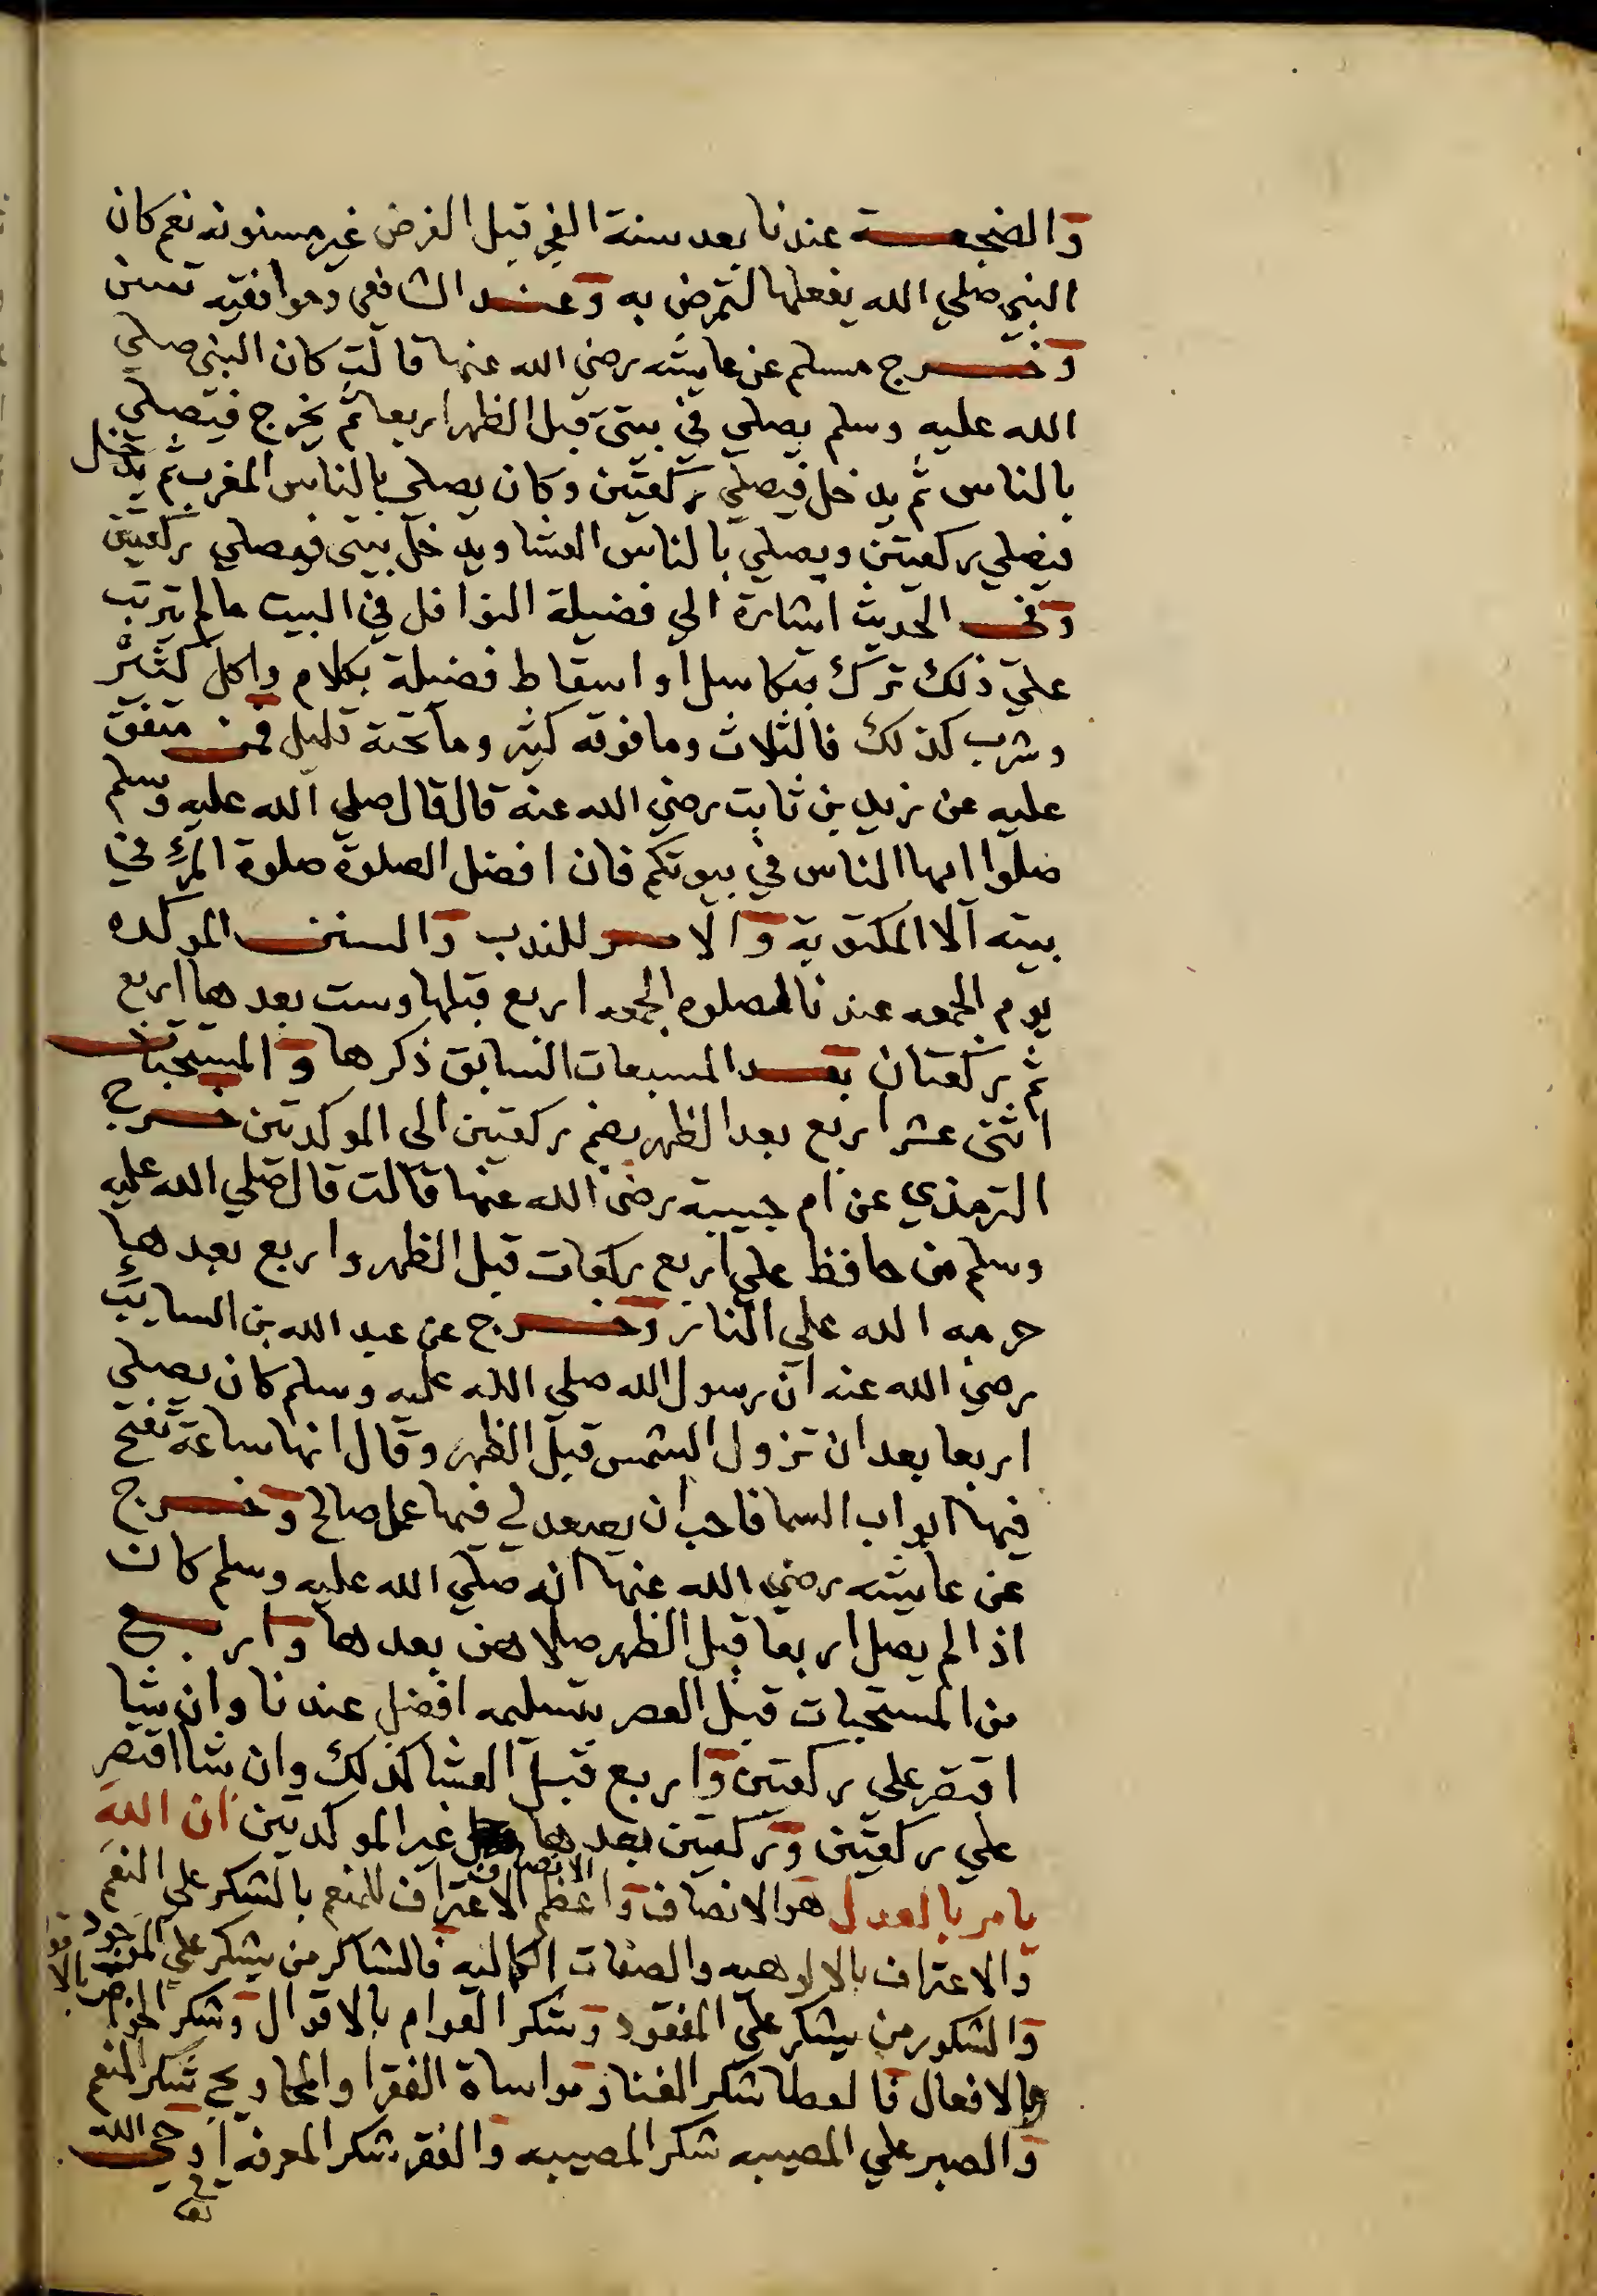 والضجعة عندنا بعد سنة الفجر قبل الفرض غير مسنونه نعم كان
النبي صلي الله يفعلها لتمرض به وعند الشافعي وموافقيه تسن
وخرج مسلم عن عايشه رضي الله عنها قالت كان النبي صلي
الله عليه وسلم يصلي في بيتي قبل الظهر اربعا ثم يخرج فيصلي
بالناس ثم يدخل فيصلي ركعتين وكان يصلي بالناس المغرب ثم يدخل
فيصلي ركعتين ويصلي بالناس العشا ويدخل بيتي فيصلي ركعتين
وفي الحديث اشارة الي فضيلة النوافل في البيت مالم يترتب
علي ذلك ترك بتكاسل او اسقاط فضيلة بكلام واكل كثير
وشرب كذلك فالثلاث ومافوقه كثير وماتحته قليل فمن متفق
عليه عن زيد بن ثابت رضي الله عنه قال قال صلي الله عليه وسلم
صلوا ايها الناس في بيوتكم فان افضل الصلوة صلوة المرء في
بيته الا المكتوبة والامر للندب والسنن الموكده
يوم الجمعه عندنا لصلوة الجمعه اربع قبلها وست بعدها اربع
ثم ركعتان بعد المسبعات السابق ذكرها والمستحبات
اثني عشر اربع بعد الظهر بضم ركعتين الى الموكدتين خرج
الترمذي عن ام حبيبة رضي الله عنها قالت قال صلي الله عليه
وسلم من حافظ علي اربع ركعات قبل الظهر واربع بعدها
حرمه الله علي النار وخرج عن عبد الله بن السايب
رضي الله عنه ان رسول الله صلي الله عليه وسلم كان يصلي
اربعا بعد ان تزول الشمس قبل الظهر وقال انها ساعة تفتح
فيها ابواب السما فاحب ان يصعد لي فيها عمل صالح وخرج
عن عايشه رضي الله عنها انه صلي الله عليه وسلم كان
اذا لم يصل اربعا قبل الظهر صلاهن بعدها واربع
من المستحبات قبل العصر بتسليمه افضل عندنا وان شا
اقتصر علي ركعتين واربع قبل العشا كذلك وان شا اقتصر
علي ركعتين وركعتين بعدها غير الموكدتين ان الله
يامر بالعدل هو الانصاف واعظم الانصاف الاعتراف للمنعم بالشكر علي النعم
والاعتراف بالالوهيه والصفات الكماليه فالشاكر من يشكر علي الموجود
والشكور من يشكر علي المفقود وشكر العوام بالاقوال وشكر الخواص بالاقوال
وبالافعال فالعطا شكر الغنا ومواساة الفقرا والمحاويج شكر المنعم
والصبر علي المصيبه شكر المصيبه والفقر شكر المعرفه اوحي الله